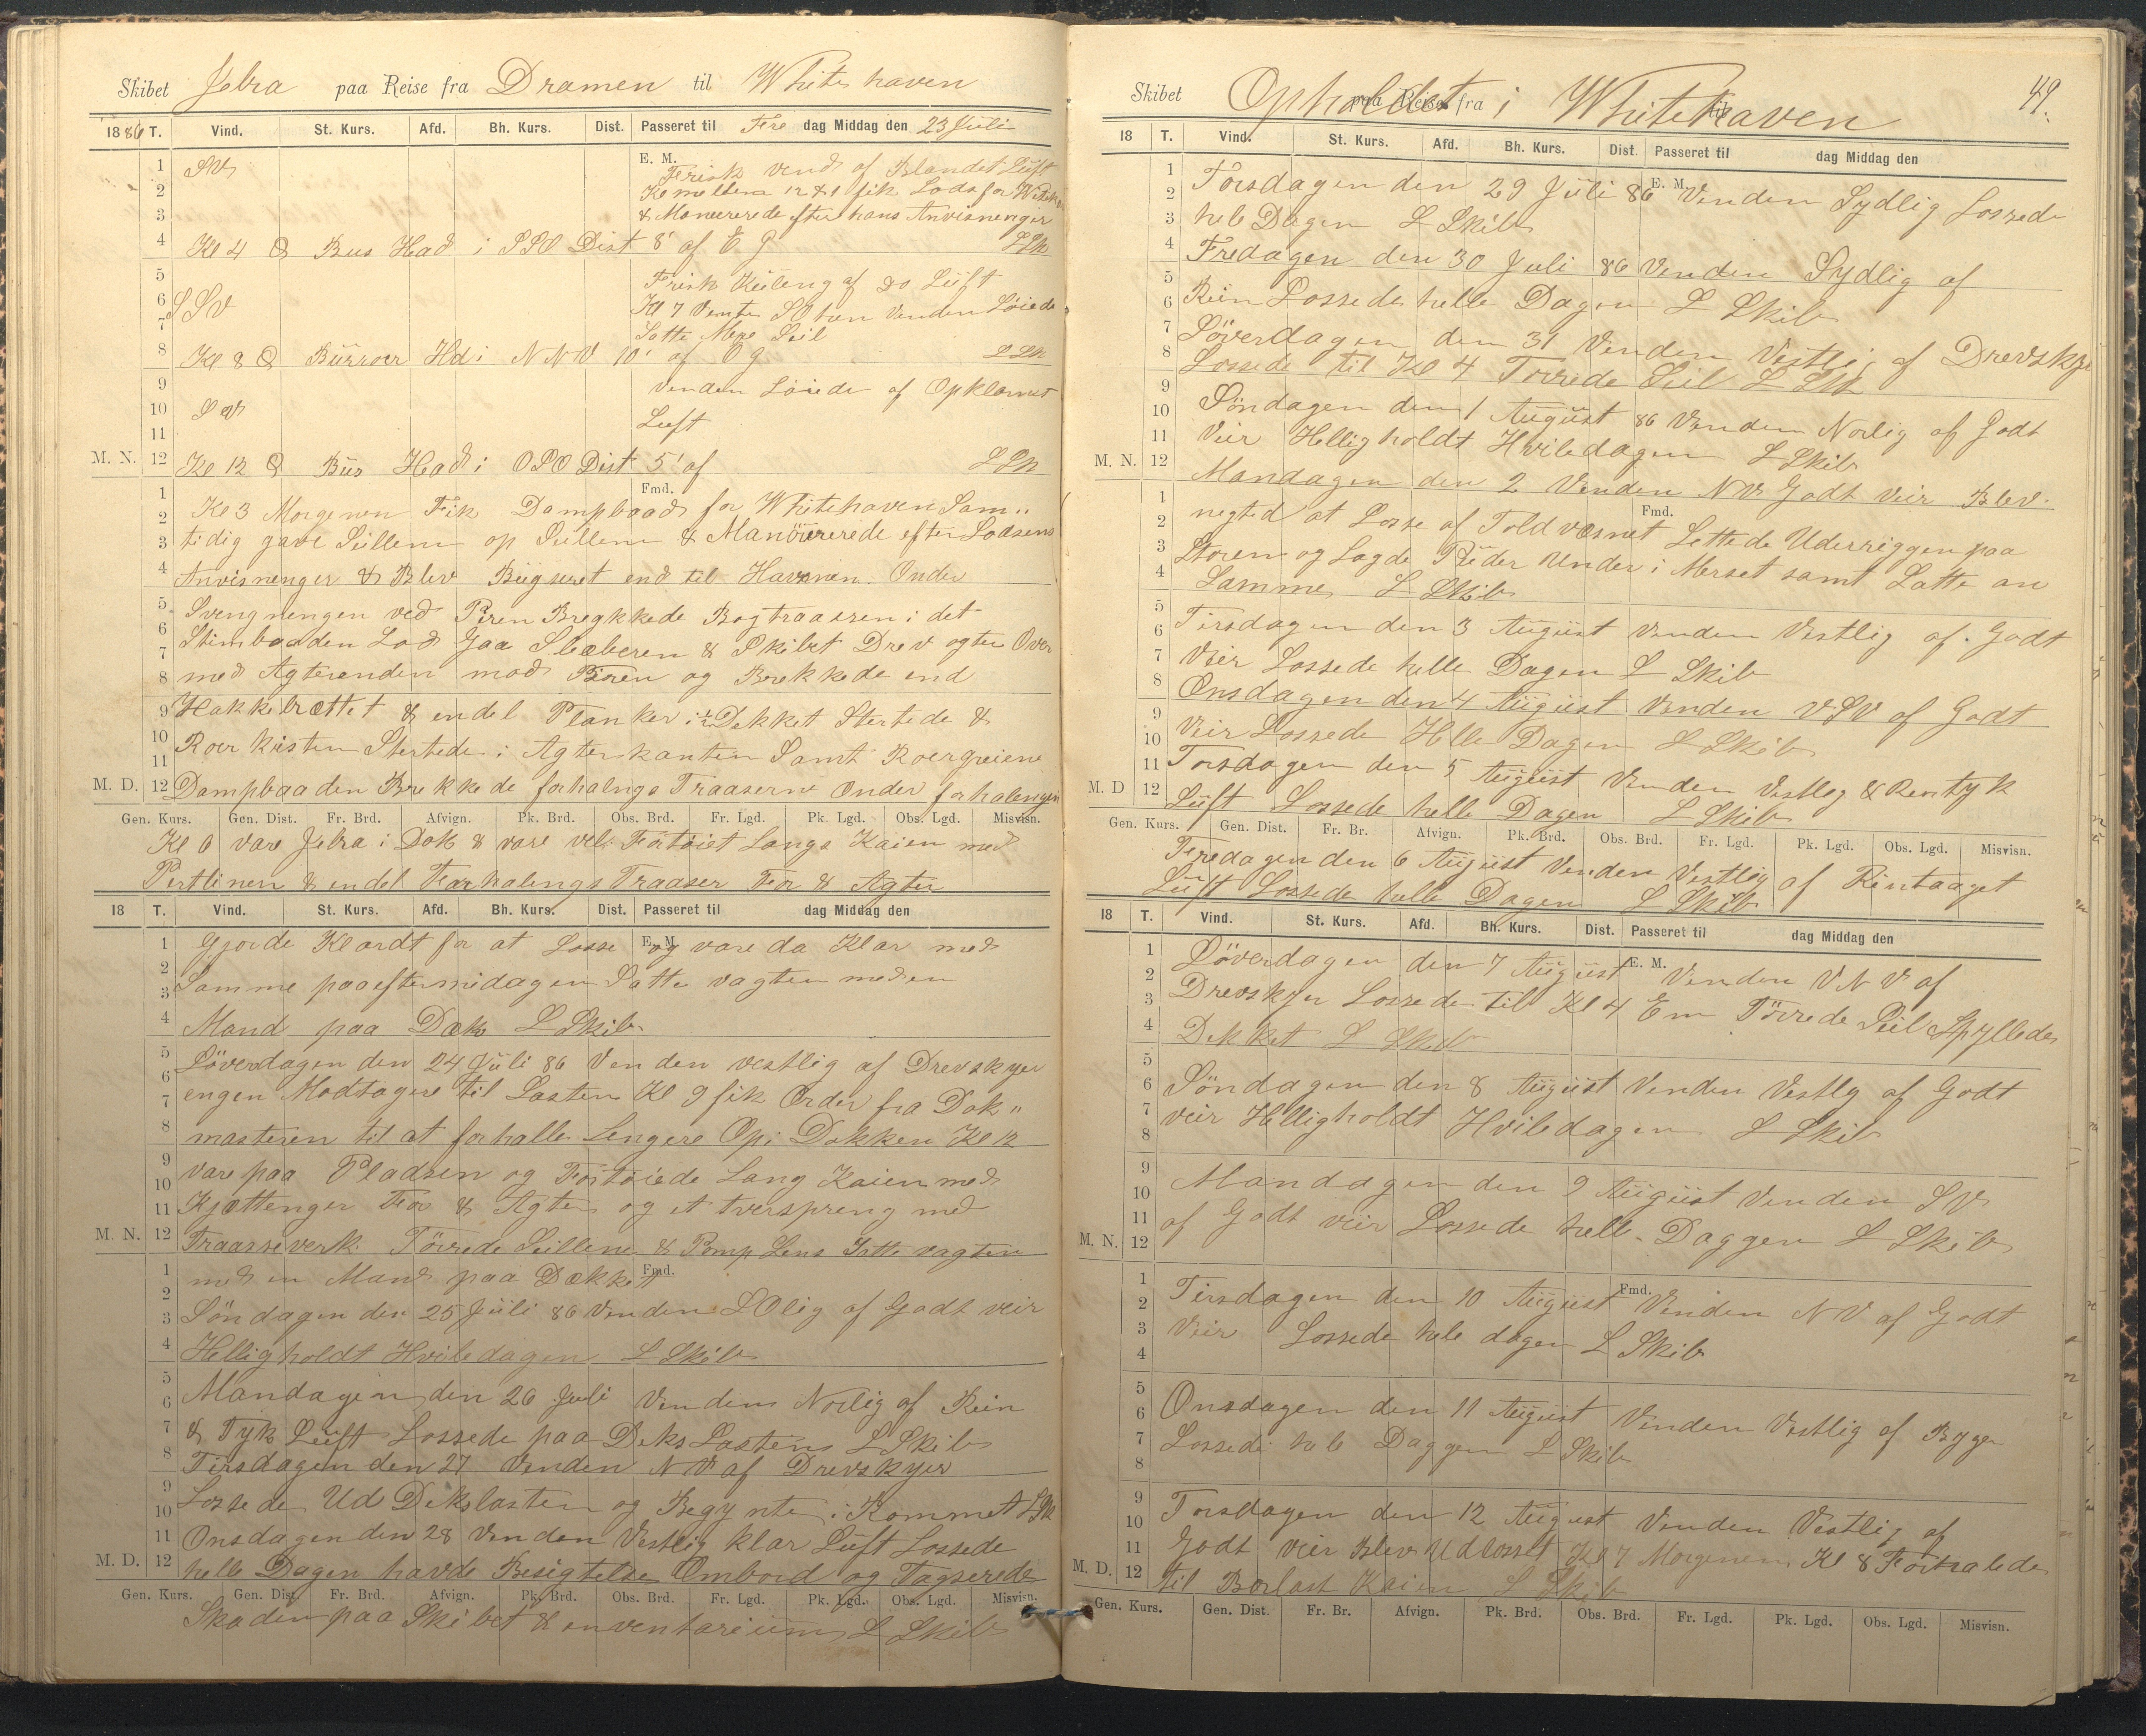 Skibet Jebra paa Reise fra Dramen til Whitehaven
1886 T. Vind. St. Kurs. Afd. Bh. Kurs. Dist. Passeret til Fre dag Middag den 23 Juli
E. M.
1 SV Frisk vend af Blandet Luft
2 Kl mellem 12 & 1 fik Lods for
3 & Manererede efter hans Anvisninger
4 Kl 4 Bus Had i SSO Dist 8' af E g
5 Frisk Küleng af do Lüft
6 SSV Kl 7 venden Løiede
7 Satte Mere Seil
8 Kl 8 Hd i NNV 10' af O g
9 Venden Løiede af Opklarnet
10 SV
11 Luft
M. N. 12 Kl 12 Büs Had i OSO Dist 5' af
Fmd.
1 Kl 3 Morgenen Fik Dampbaad for Whitehaven Sam„
2
3 tidig gave Seillem op Seillem & Manöurerede efter Lodsens
4 Anvisnenger & Blev Bügseret end til Havnnen Onder
5 Svengnengen ved Piren Bregkkede Bogtraassen i det
6 Stimbaaden Lod Gaa Slæberen & Skibet Drev agter Over
7
8 med Agterenden mod Piren og Brekkede end
9 Hakkebrættet & endel Planker i Dekket Stertede &
10 Roerkisten Stertede i Agterkanten Samt Roergreiene
11
M. D. 12 Dampbaaden Brekkede forhalngs Traaserne Onder forhalengen
Gen. Kurs. Gen. Dist. Fr. Brd. Afvign. Pk. Brd. Obs. Brd. Fr. Lgd. Pk. Lgd. Obs. Lgd. Misvisn.
Kl 6 vare Jebra i Dok & vare vel Fortöiet Langs Kaien med
Pertlinen & endel Forhalengs Traaser For & Agter
18 T. Vind. St. Kurs. Afd. Bh. Kurs. Dist. Passeret til dag Middag den
E. M.
1 Gjorde Klardt for at Losse og vare da Klar med
2
3 Samme paa eftermidagen Satte vagten med en
4 Mand paa Dæk L Skib
5 Löverdagen den 24 Juli 86 Venden vestlig af Drevskyer
6
7 engen Modtagere til Lasten Kl 9 fik Order fra Dok„
8 masteren til at forhalle Lengere Op i Dokken Kl 12
9 vare paa Pladsen og Fortöiede Lang Kaien med
10
11 Kjættenger For & Agter og et tverspreng med
M. N. 12 Traasseverk Törrede Seillene & Pomp Lens Satte vagten
Fmd.
1 med en Mand paa Dækket
2
3 Söndagen den 25 Juli 86 Venden SOlig af Godt veir
4 Helligholdt Hviledagen L Skib
5
6 Mandagen den 26 Juli Venden Norlig af Rein
7 & Tyk Lüft Lossede paa Deks Lasten L Skib
8 Tirsdagen den 27 Venden NV af Drevskyer
9
10 Lossede Ud Dekslasten og Begynte i Rommet
11 Onsdagen den 28 Venden Vestlig klar Lüft Lossede
M. D. 12 helle Dagen havde Besigtelse Ombord og Tagserede
Gen. Kurs. Gen. Dist. Fr. Brd. Afvign. Pk. Brd. Obs. Brd. Fr. Lgd. Pk. Lgd. Obs. Lgd. Misvisn.
Skaden paa Skibet & enventarium L Skib
49.
Skibet Opholdet i Whitehaven paa Reise fra til
18 T. Vind. St. Kurs. Afd. Bh. Kurs. Dist. Passeret til dag Middag den
E. M.
1 Torsdagen den 29 Juli 86 Venden Sydlig Lossede
2
3 hele Dagen L Skib
4 Fredagen den 30 Juli 86 Venden Sydlig af
5
6 Rein Lossede helle Dagen L Skib
7 Löverdagen den 31 Venden Vestlig af Drevskyer
8 Lossede til Kl 4 Torrede Seil
9
10 Söndagen den 1 August 86 Venden Norlig af Godt
11 Veir Helligholdt Hviledagen L Skib
M. N. 12 Mandagen den 2 Venden NV Godt Veir Blev
Fmd.
1 negted at Losse af Toldvæsnet Lettede Uderriggen paa
2
3 Storen og Lagde Rüder Under i Merset samt Satte an
4 Samme L Skib
5
6 Tirsdagen den 3 August Venden Vestlig af Godt
7 Veir Lossede helle Dagen L Skib
8 Onsdagen den 4 August Venden VSV af Godt
9
10 Veir Lossede Helle Dagen L Skib
11 Torsdagen den 5 August Venden Vestleg & Rentyk
M. D. 12 Lüft Lossede helle Dagen L Skib
Gen. Kurs. Gen. Dist. Fr. Br. Afvign. Pk. Brd. Obs. Brd. Fr. Lgd. Pk. Lgd. Obs. Lgd. Misvisn.
Feredagen den 6 August Venden Vestlig af Rintaaget
Lüft Lossede helle Dagen L Skib
18 T. Vind. St. Kurs. Afd. Bh. Kurs. Dist. Passeret til dag Middag den
E. M.
1 Löverdagen den 7 August Venden VNV af
2
3 Drevskyer Lossede til Kl 4 Em Törrede Seil Spyllede
4 Dekket L Skib
5
6 Söndagen den 8 August Venden Vestlg af Godt
7 veir Helligholdt Hviledagen L Skib
8
9
10 Mandagen den 9 August Venden SV
11 af Godt veir Lossede helle Daggen L Skib
M. N. 12
Fmd.
1
2 Tirsdagen den 10 August Venden NV af Godt
3 Veir Lossede hele dagen L Skib
4
5
6 Onsdagen den 11 August Venden Vestlig af Byger
7 Lossede hele Daggen L Skib
8
9
10 Torsdagen den 12 August Venden Vestlig af
11 Godt veir Blev Udlosset Kl 7 Morgenen Kl 8 Forhalede
M. D. 12 til Barlast Kaien L Skib
Gen. Kurs. Gen. Dist. Fr. Br. Afvign. Pk. Brd. Obs. Brd. Fr. Lgd. Pk. Lgd. Obs. Lgd. Misvisn.